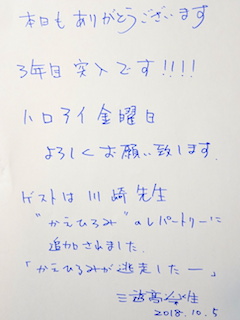 本日もありがとうございます
3年目突入です!!!!
ハロアイ金曜日
よろしくお願い致します.
ゲストは川崎先生
"かえひろみ"のレパートリーに
追加されました.
「かえひろみが逃走したー」
三遊亭
2018.10.5